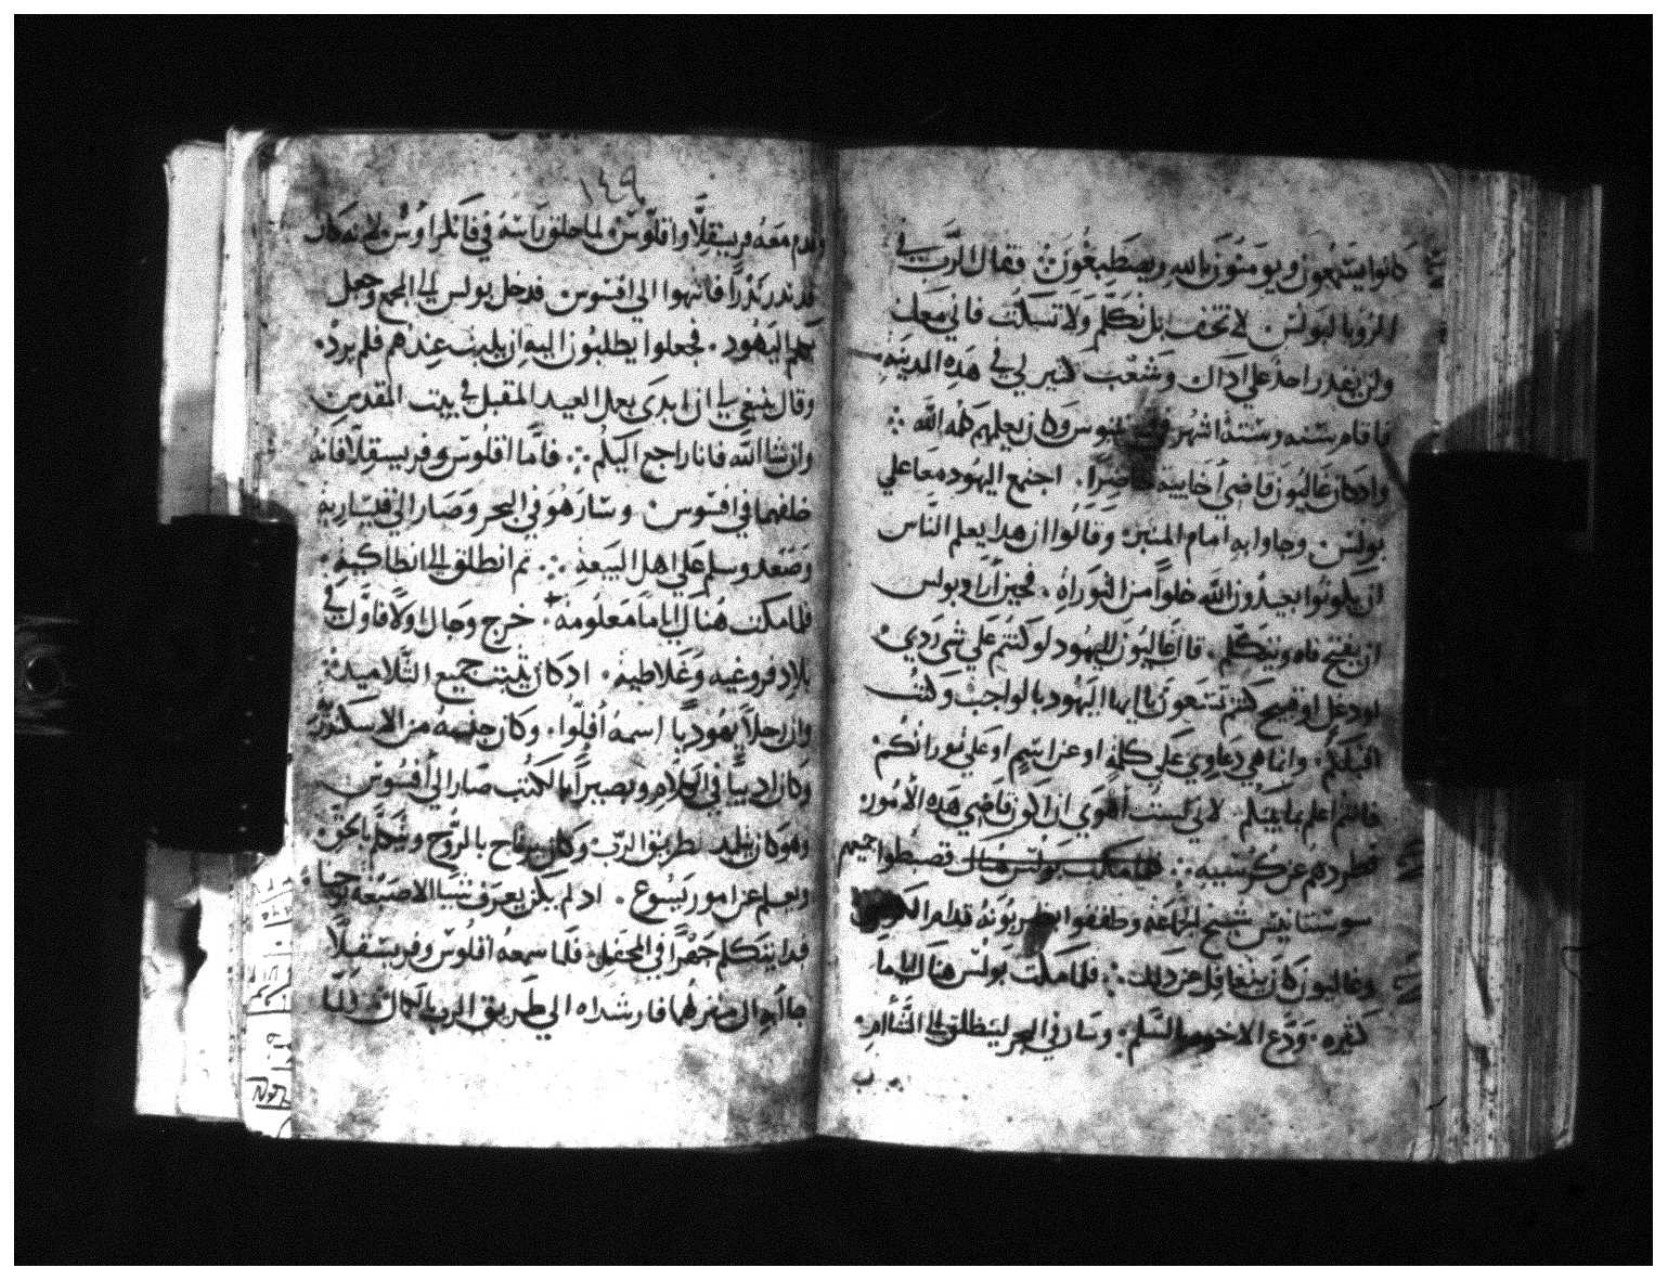 كانوا يستمعون ويومنون بالله ويصطبغون ∴ فقال الرب في
الرويا لبولس. لا تخف بل تكلم ولا تسكت فاني معك
ولن يقدر احد علي اذاك وشعب كثير لي في هذه المدينة
فاقام سنه وستة اشهر وكان يعلمهم كلمه الله ∴
واذ كان غاليون قاضي اخاييه حاضرا. اجتمع اليهود معا علي
بولس. وجاوا به امام المنبر. وقالوا ان هذا يعلم الناس
ان يكونوا يعبدون الله خلوا من التوراه. فحين اراد بولس
ان يفتح فاه ويتكلم. قال غاليون لليهود لو كنتم علي شي ردي
او دغل او قبيح كنتم تسعون يا ايها اليهود بالواجب كنت
اقبلكم. وانما هي دعاوي علي كلمة او عن اسم او علي توراتكم
فانتم اعلم بما بينكم. لاني لست اهوي ان اكون قاضي هذه الامور.
فطردهم عن كرسيه ∴ فلما مكث بولس هناك فضبطوا جميعهم
سوستانيس شيخ الجماعة وطفقوا يضربونه قدام الكرسي
وغاليون كان يتغافل عن ذلك ∴ فلما مكث بولس هناك اياما
كثيره. ودع الاخوه بالسلم. وسار في البحر لينطلق الي الشام.
١٤٩
وقدم معه فريسقلا واقلوس. لما حلق راسه في قانكراوس. لانه كان
قد نذر نذرا فانتهوا الي افسوس. فدخل بولس الي المجمع وجعل
يكلم اليهود. فجعلوا يطلبون اليه ان يلبث عندهم فلم يرد.
وقال ينبغي لي ان ابدي بعمل العيد المقبل في بيت المقدس
وان شا الله فانا راجع اليكم ∴ فاما اقلوس وفريسقلا فانه
خلفهما في افسوس. وسار هو في البحر وصار الي قيساريه
وصعد وسلم علي اهل البيعة ∴ ثم انطلق الي انطاكيه.
فلما مكث هناك اياما معلومه. خرج وجال اولا فاول في
بلاد فروغيه وغلاطيه. اذ كان يثبت جميع التلاميذ.
وان رجلا يهوديا اسمه افلوا. وكان جنسه من الاسكندريه
وكان اديبا في الكلام وبصيرا بالكتب صار الي افسوس
وهو كان تلمذ بطريق الرب وكان يرتاح بالروح ويتكلم بالحق.
ويعلم عن امور يسوع. اذ لم يكن يعرف شيا الا صبغه يوحنا.
فبدا يتكلم جهرا في المحفل. فلما سمعه اقلوس وفريسقلا
جاا به الي منزلهما فارشداه الي طريق الرب بالكمال. ولما